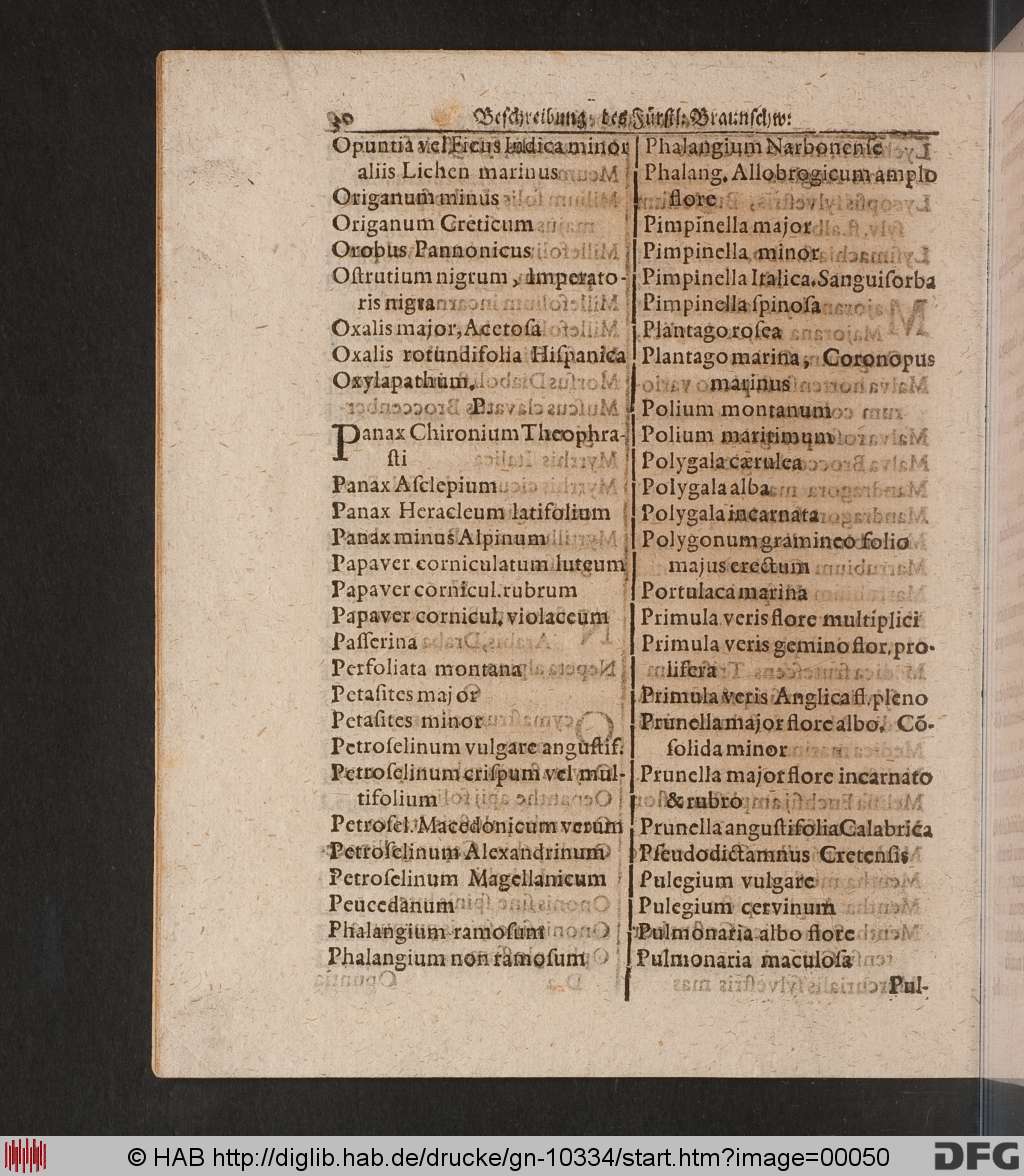 30
Beſchreibung, des Fürſtl: Braunſchw:
Opuntia vel Ficus Indica minor
aliis Lichen marinus
Origanum minus
Origanum Creticum
Orobus Pannonicus
Oſtrutium nigrum, Imperato-
ris nigra
Oxalis major, Acetoſa
Oxalis rotundifolia Hiſpanica
Oxylapathum.
P.
Panax Chironium Theophra-
ſti
Panax Aſclepium
Panax Heracleum latifolium
Panax minus Alpinum
Papaver corniculatum luteum
Papaver cornicul. rubrum
Papaver cornicul, violaceum
Paſſerina
Perfoliata montana
Petaſites major
Petaſites minor
Petroſelinum vulgare anguſtif.
Petroſelinum criſpum vel mul-
tifolium
Petroſel. Macedonicum verum
Petroſelinum Alexandrinum
Petroſelinum Magellanicum
Peucedanum
Phalangium ramoſum
Phalangium non ramoſum
Phalangium Narbonenſe
Phalang. Allobrogicum amplo
flore
Pimpinella major
Pimpinella minor
Pimpinella Italica. Sanguiſorba
Pimpinella ſpinoſa
Plantago roſea
Plantago marina, Coronopus
marinus
Polium montanum
Polium maritimum
Polygala cærulea
Polygala alba
Polygala incarnata
Polygonum gramineo folio
majus erectum
Portulaca marina
Primula veris flore multiplici
Primula veris gemino flor, pro-
lifera
Primula veris Anglica fl. pleno
Prunella major flore albo. Cō-
ſolida minor
Prunella major flore incarnato
& rubro
Prunella anguſtifolia Calabrica
Pſeudodictamnus Cretenſis
Pulegium vulgare
Pulegium cervinum
Pulmonaria albo flore
Pulmonaria maculoſa
Pul-
© HAB http://diglib.hab.de/drucke/gn-10334/start.htm?image=00050
DFG